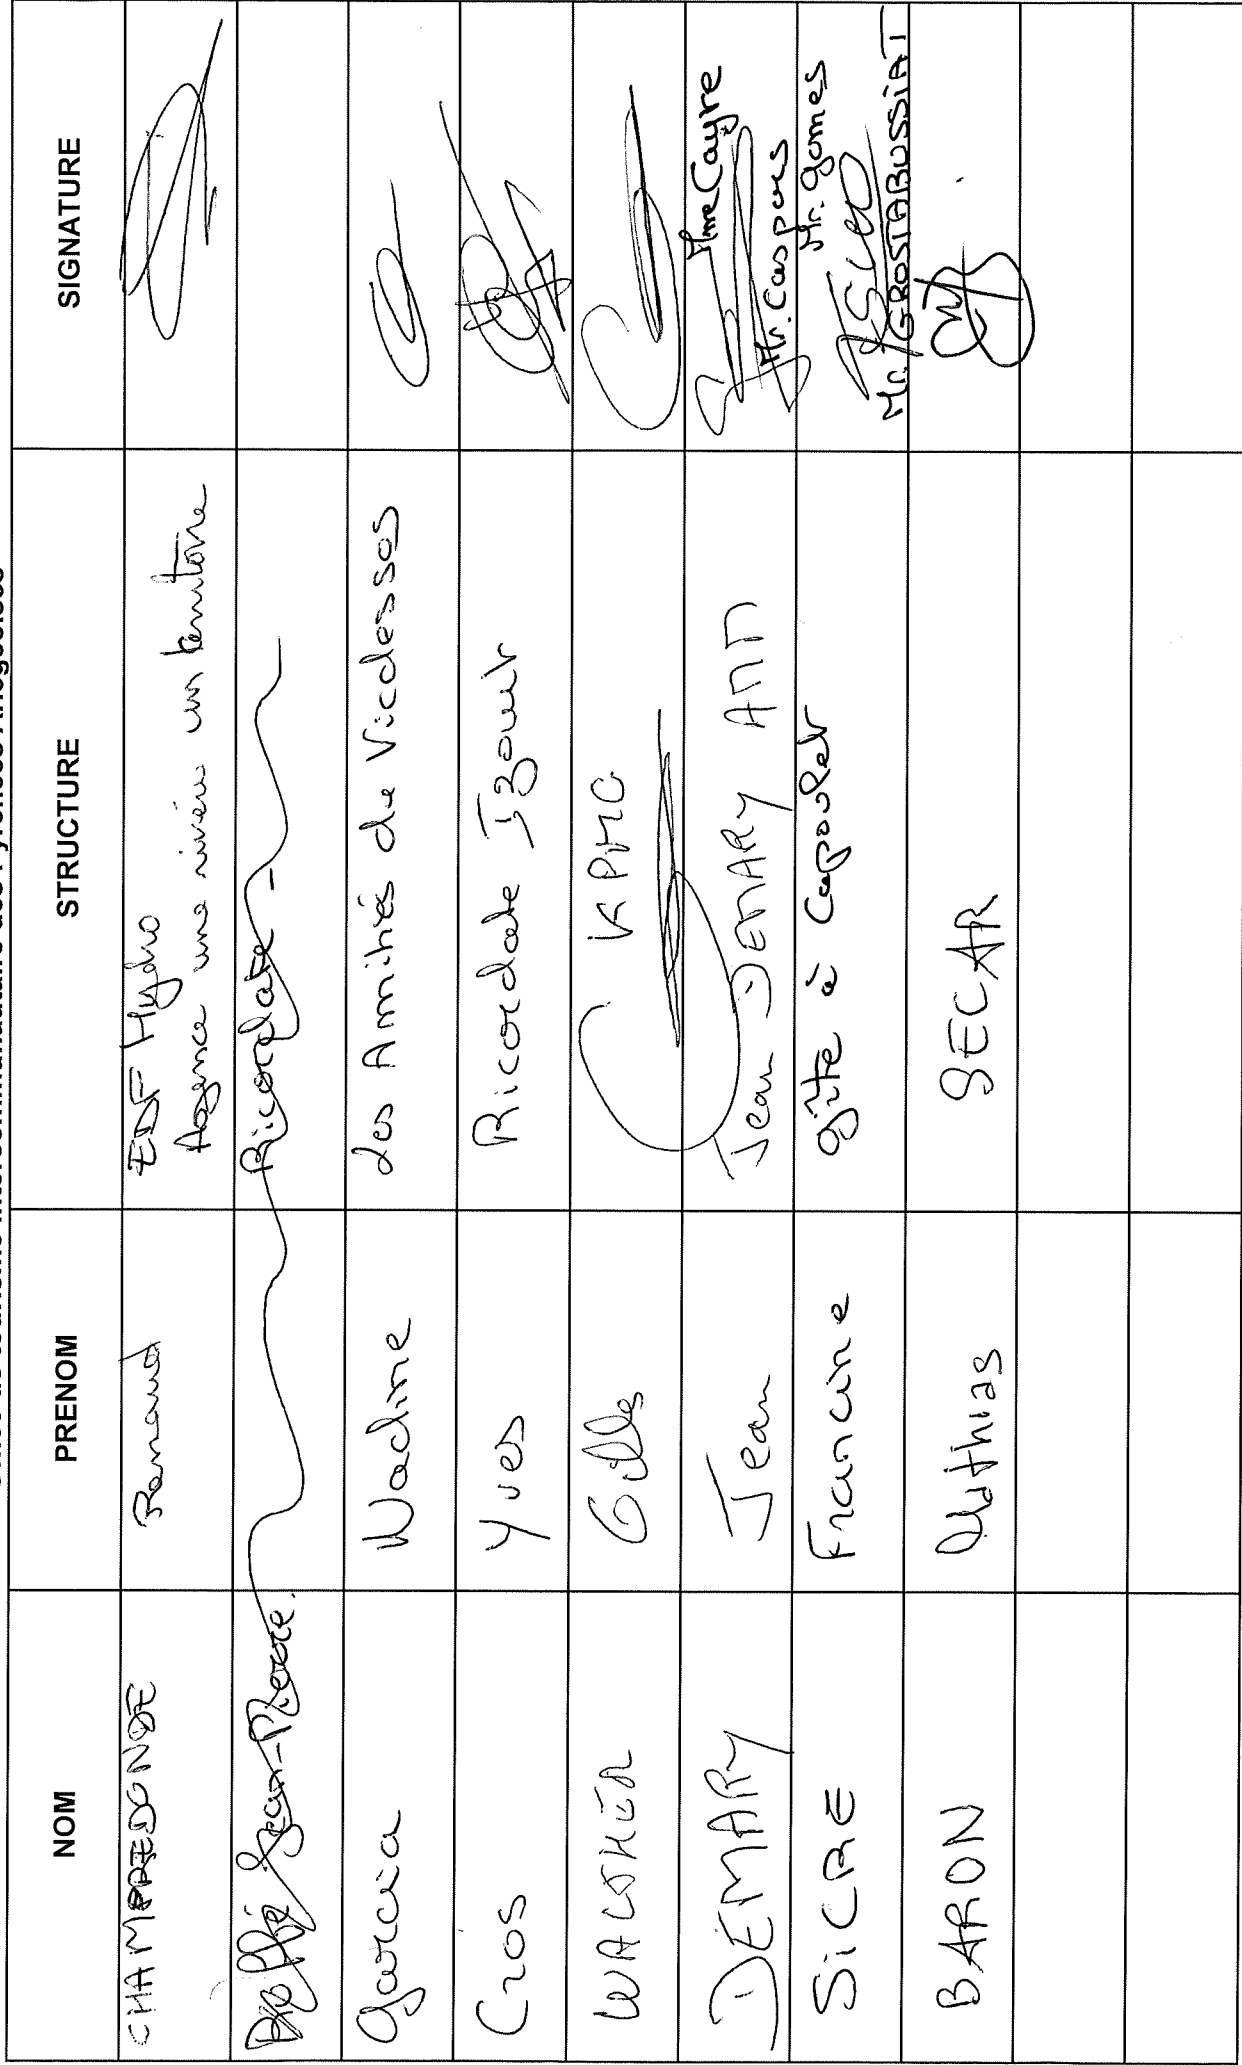 NOM PRENOM STRUCTURE SIGNATURE
CHAMPREDONDE Renaud EDF Hydro
Agence une rivière un territoire
Jean-Pierre. Ricordate -
Garcia Nadine Les Amitiés de Vicdessos
Cros Yves Ricordate Izourt
WALCHER Gilles KPMG
DEMARY Jean Jean DEMARY AMM Mme Cayre
Mr. Caspars
SiCRE Francine gîte à Capoulet Mr. Gomes
Mr. GROSTABUSSIAT
BARON Mathias SECAR